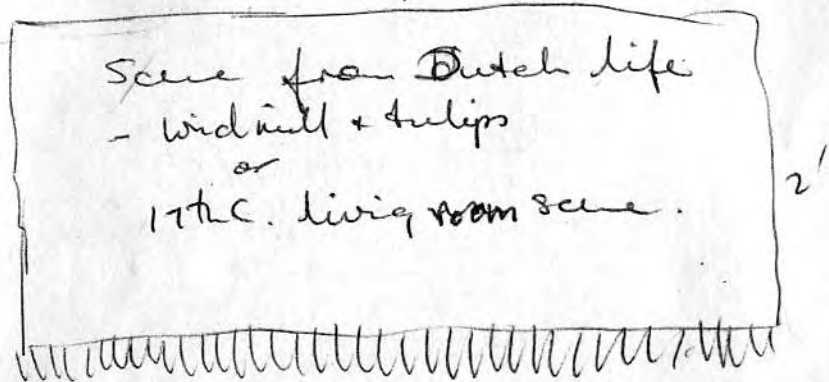 Scene from Dutch life
- windmill + tulips
or
17th C. living room scene.
2'